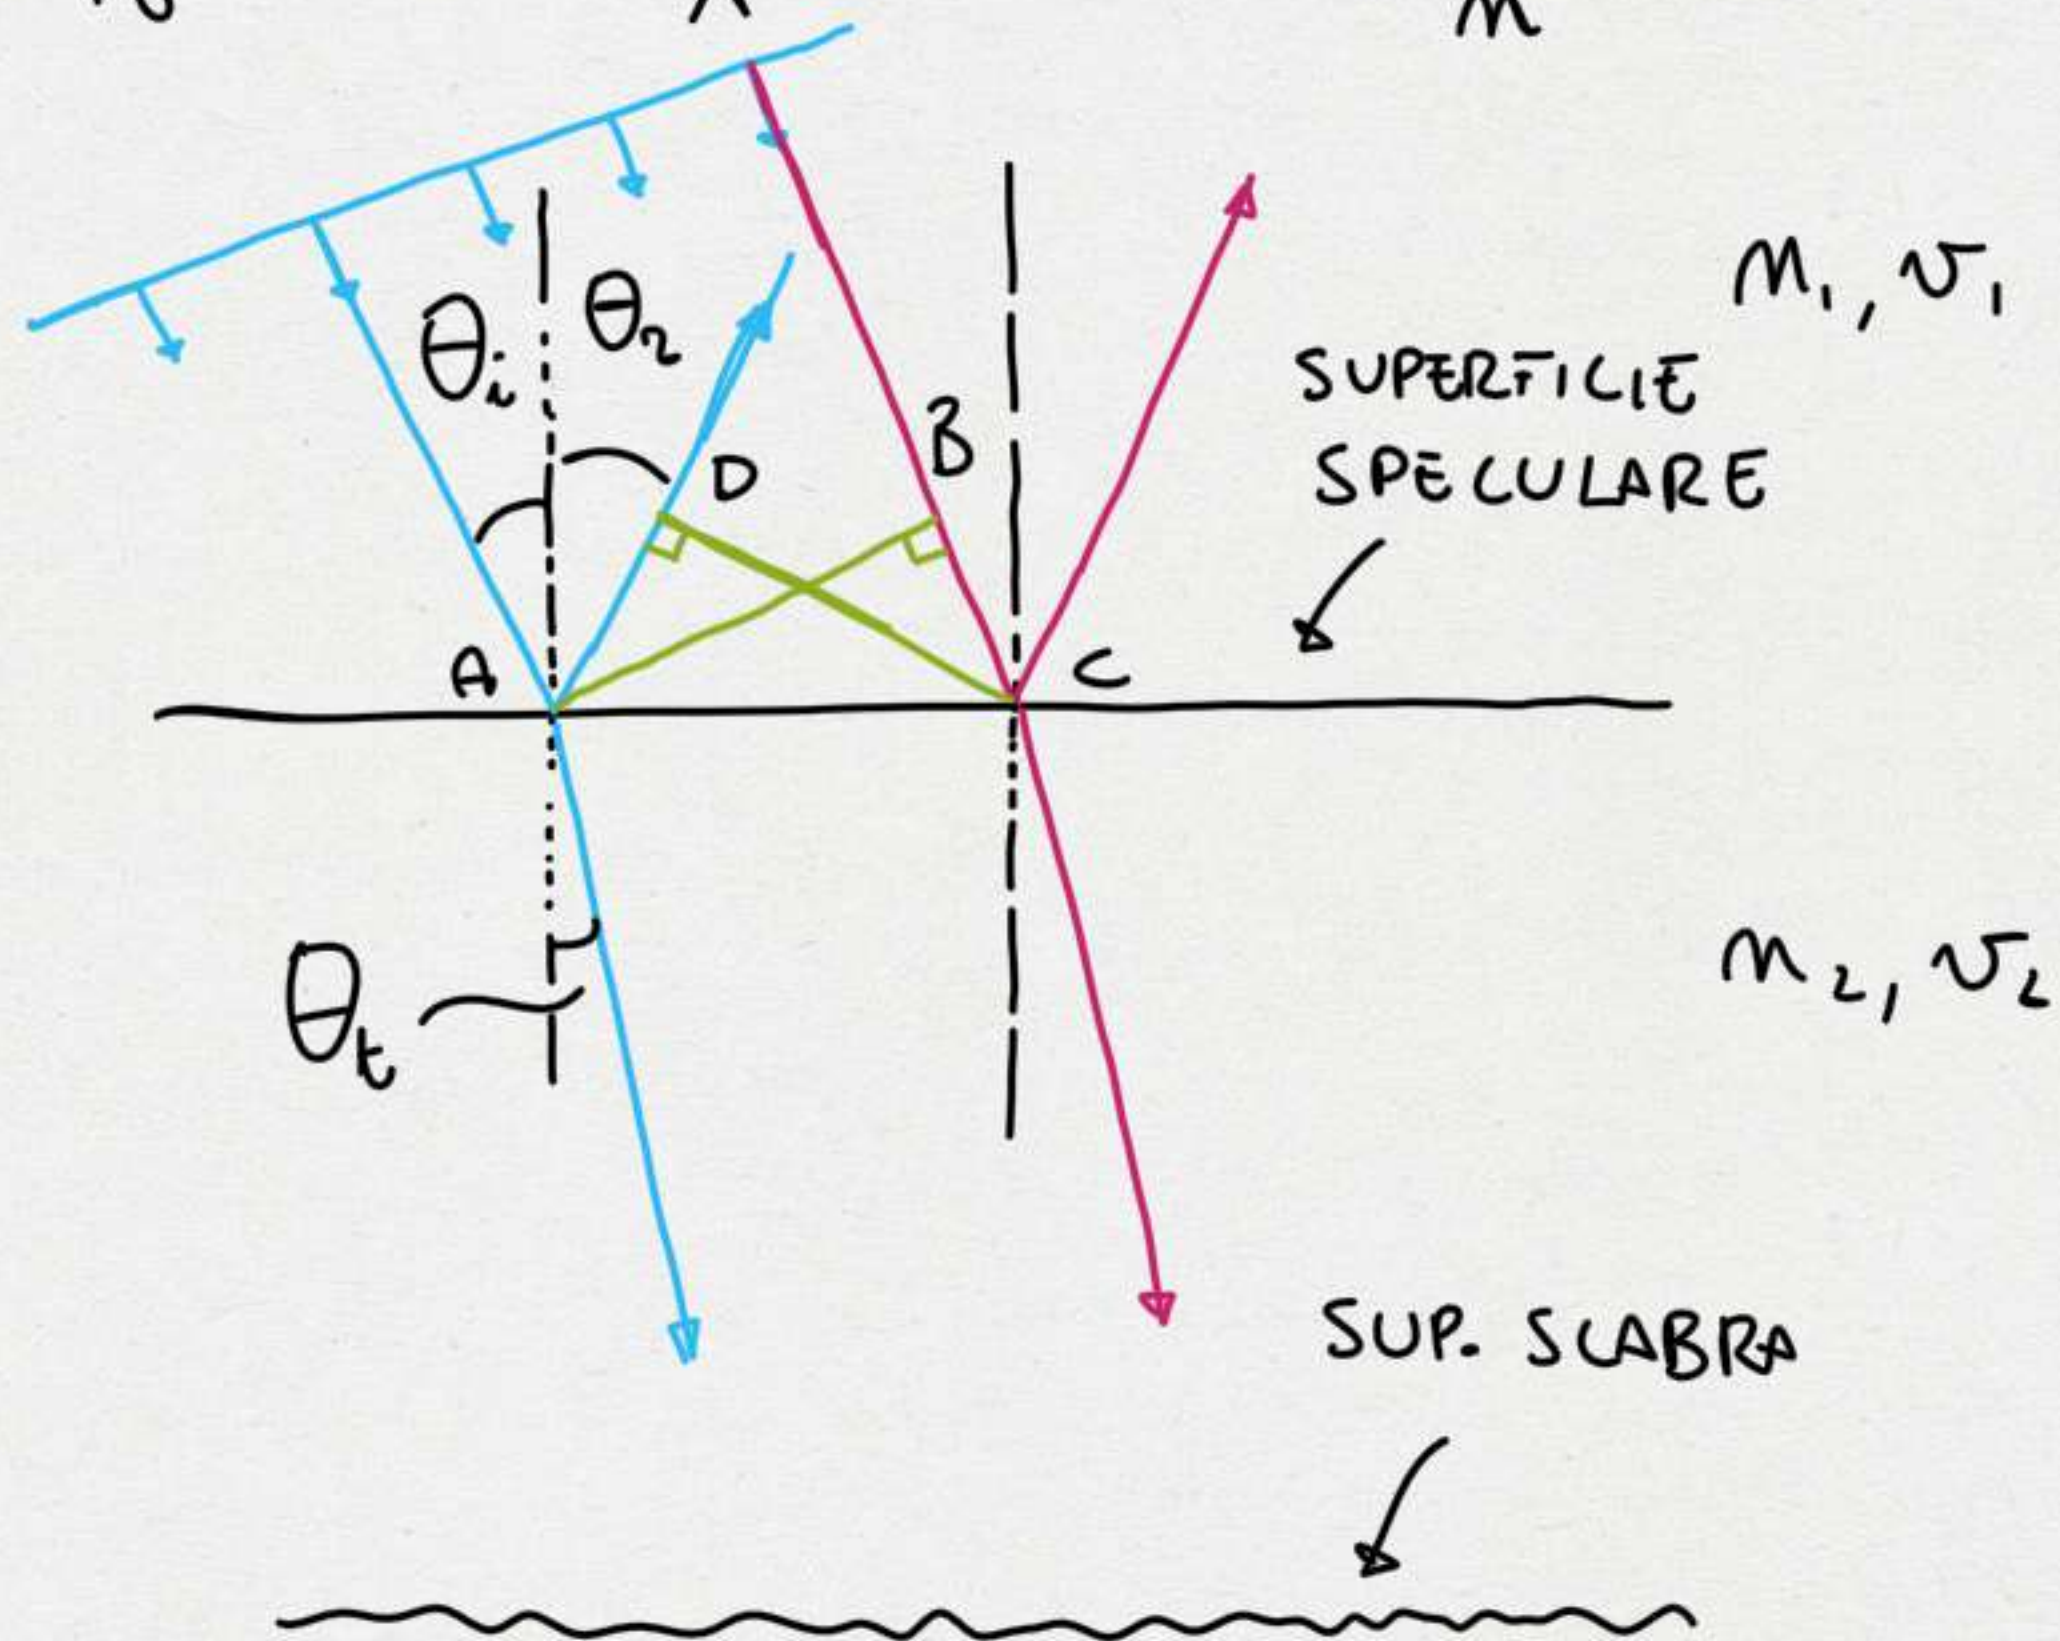 θi θr
n1, v1
SUPERFICIE
SPECULARE
D
B
A
C
θt
n2, v2
SUP. SCABRA